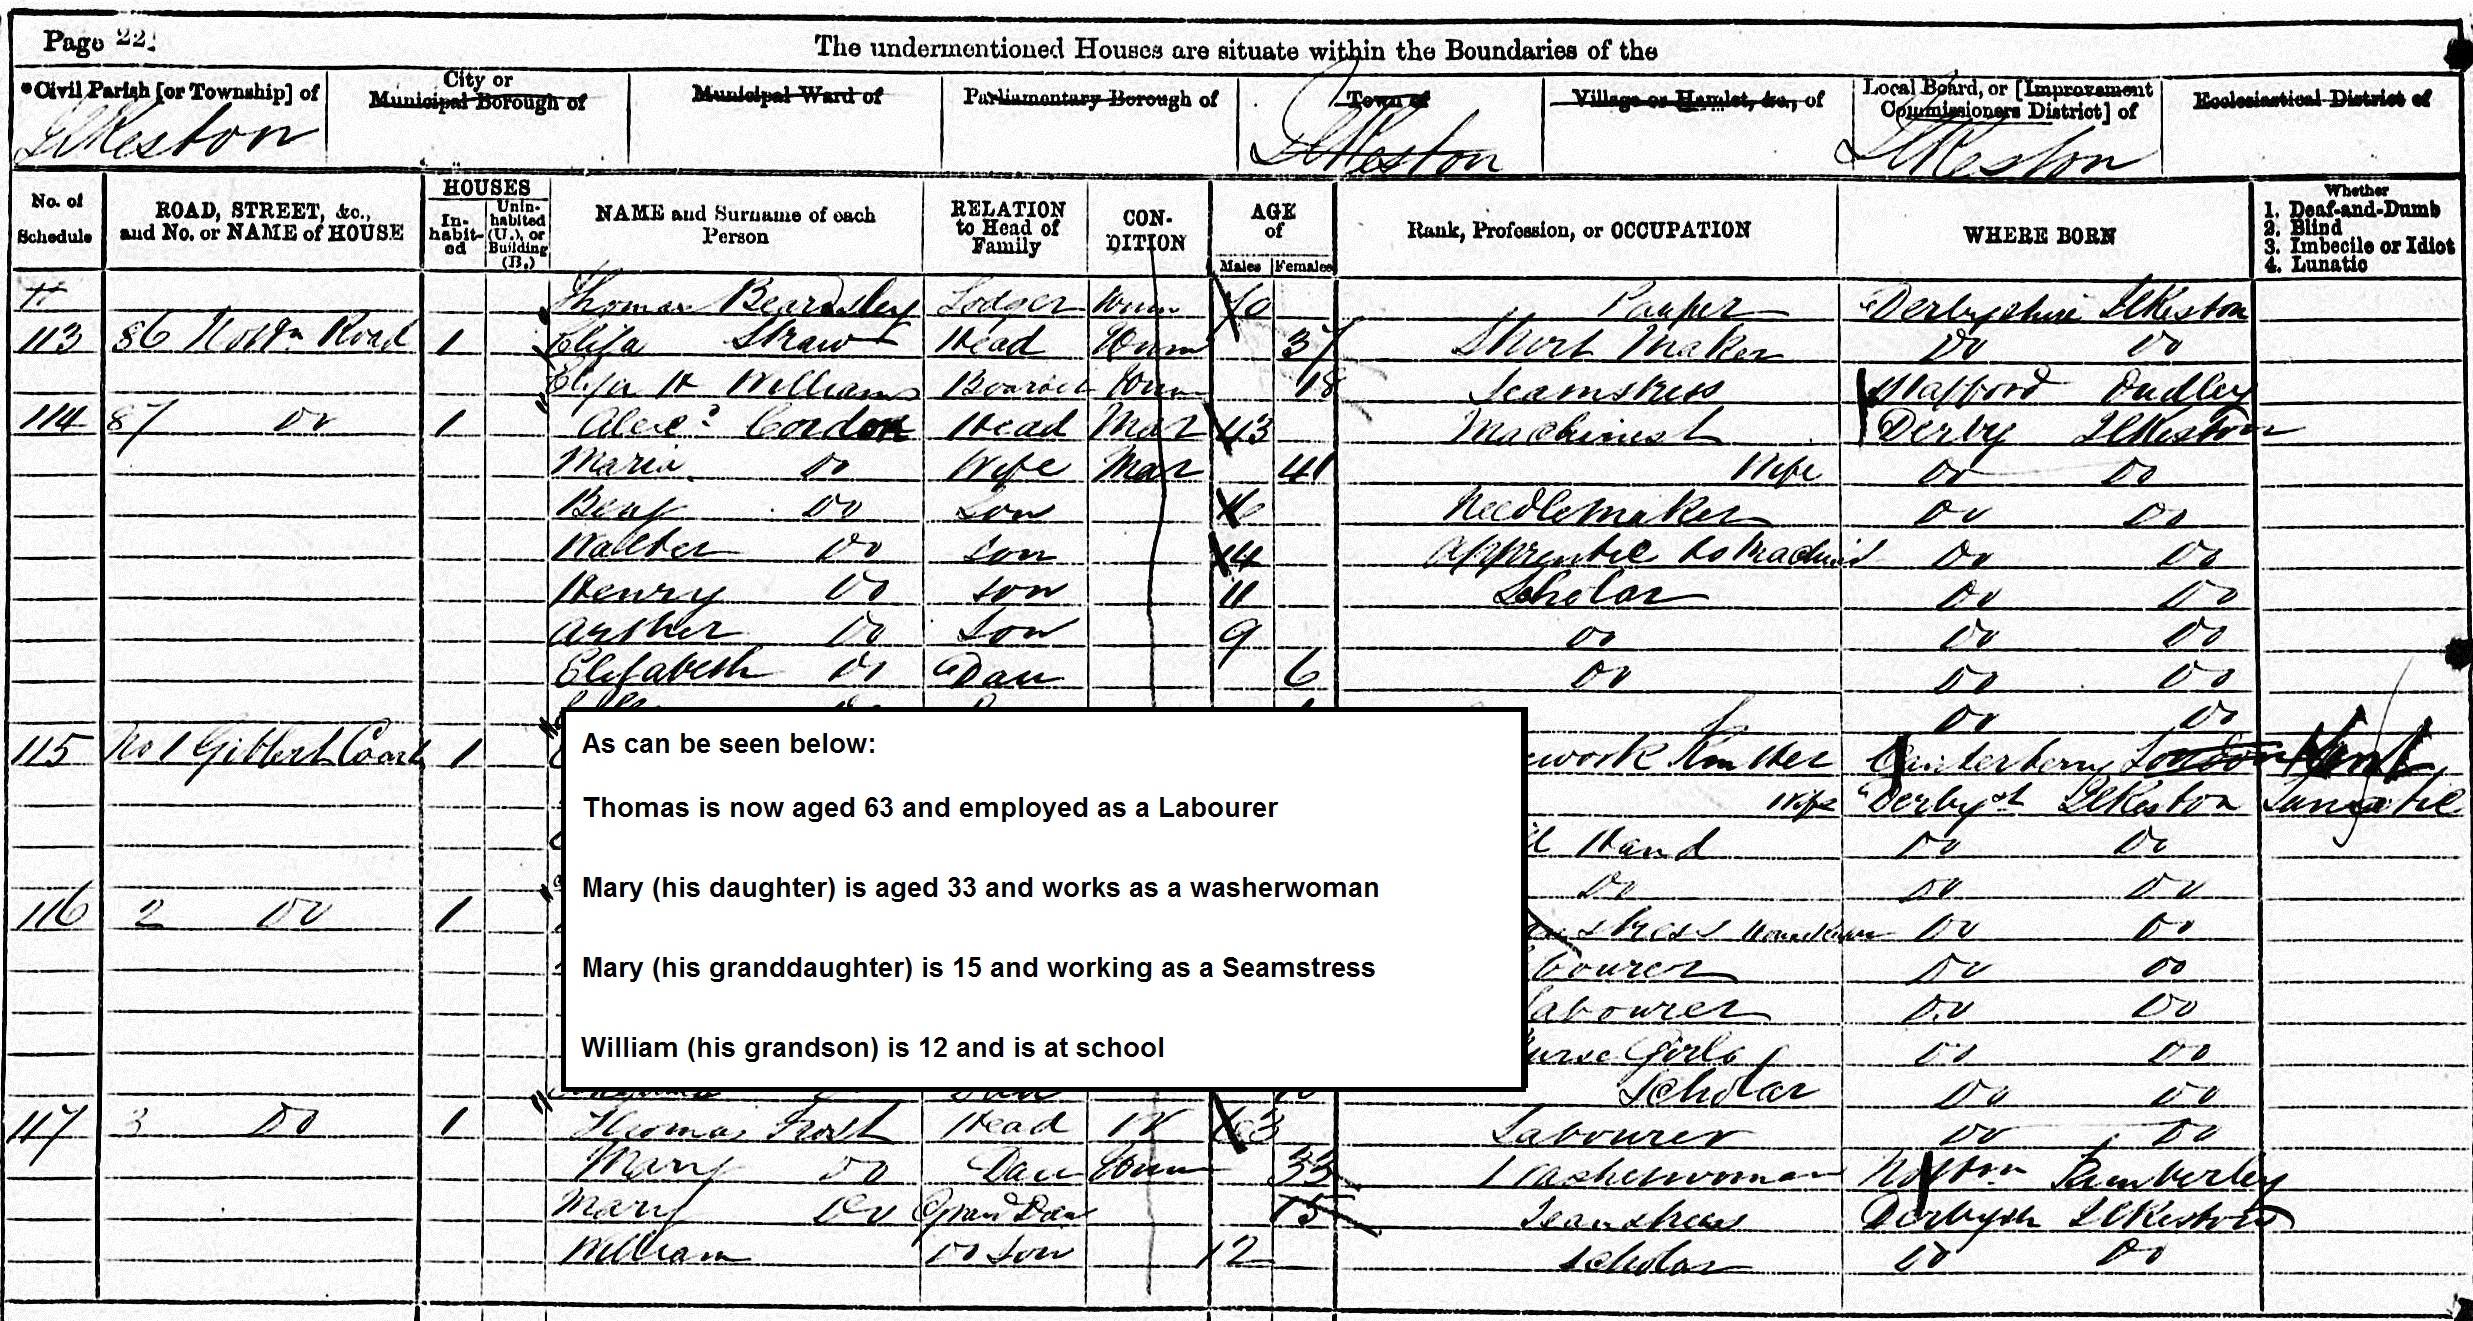 Page 22.
The undermentioned Houses are situate within the Boundaries of the
*Civil Parish [or Township] of City or Municipal Borough of Municipal Ward of Parliamentary Borough of Town of Village or Hamlet, &c., of Local Board, or [Improvement Commissioners District] of Ecclesiastical District of
Ilkeston Ilkeston Ilkeston
No. of Schedule ROAD, STREET, &c., and No. or NAME of HOUSE HOUSES In-habit-ed Unin-habited (U.), or Building (B.) NAME and Surname of each Person RELATION to Head of Family CON-DITION AGE of Males Females Rank, Profession, or OCCUPATION WHERE BORN Whether 1. Deaf-and-Dumb 2. Blind 3. Imbecile or Idiot 4. Lunatic
Thomas Beardsley Lodger Unm Pauper Derbyshire Ilkeston
113 86 Road 1 Eliza Straw Head Unm 37 Shirt Maker Do Do
Eliza H Williams Boarder Unm 18 Seamstress Stafford Dudley
114 87 Do 1 Alexr Gordon Head Mar 43 Machinest Derby Ilkeston
Maria Do Wife Mar 41 Wife Do Do
Benj Do Son 16 Needlemaker Do Do
Walter Do Son 14 Apprentice to Machinist Do Do
Henry Do Son 11 Scholar Do Do
Arther Do Son 9 Do Do Do
Elizabeth Do Dau 6 Do Do Do
Do Do
115 No 1 Court 1 ework Knitter Canterbury London Kent
Wife Derbysh Ilkeston Lunatic
Hand Do Do
Do Do Do
116 2 Do 1 stress Do Do
bourer Do Do
Labourer Do Do
urse Girl Do Do
Scholar Do Do
As can be seen below:
Thomas is now aged 63 and employed as a Labourer
Mary (his daughter) is aged 33 and works as a washerwoman
Mary (his granddaughter) is 15 and working as a Seamstress
William (his grandson) is 12 and is at school
117 3 Do 1 Thomas Frost Head W 63 Labourer Do Do
Mary Do Dau Unm 33 Washerwoman Notton Kimberley
Mary Do Gran Dau 15 Seamstress Derbysh Ilkeston
William Do Son 12 Scholar Do Do